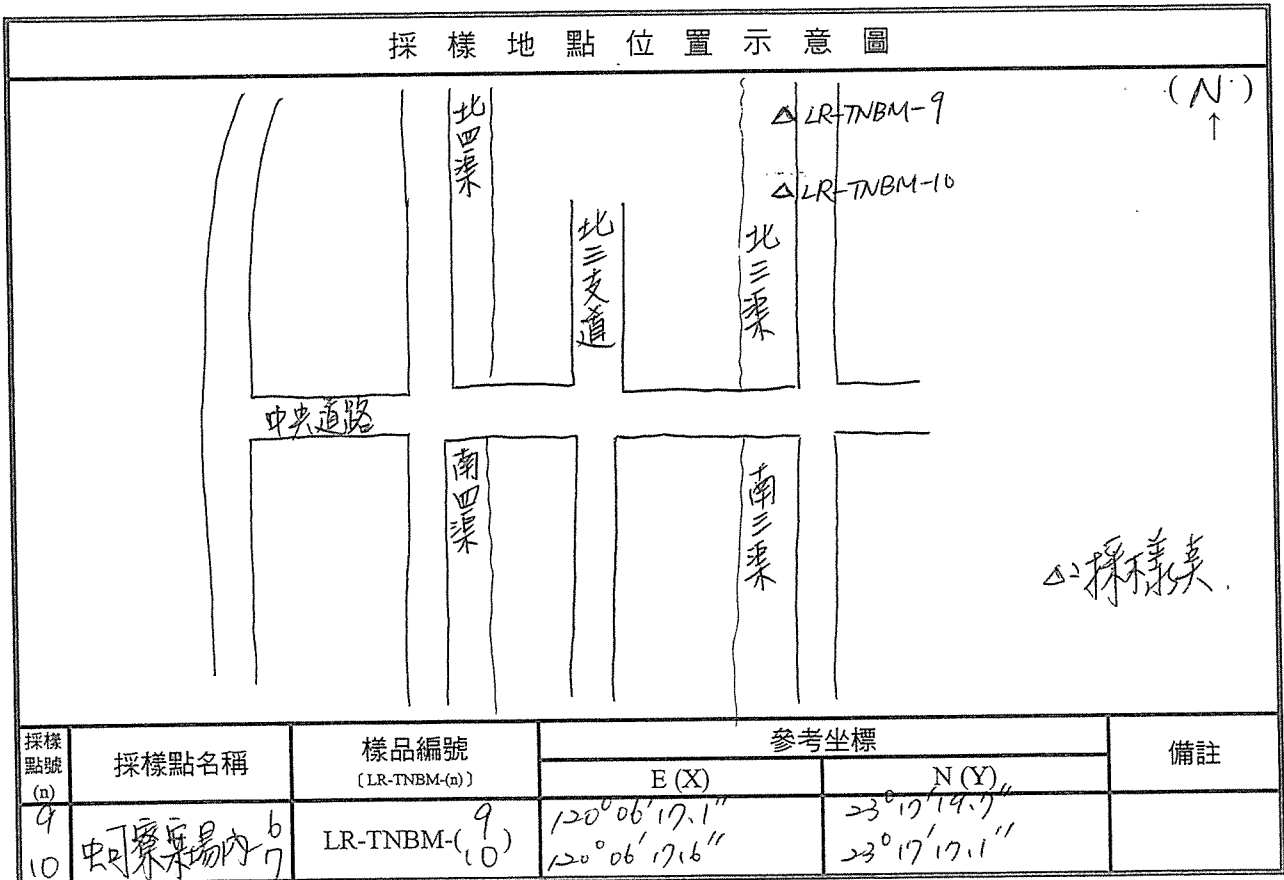 採樣地點位置示意圖
(N)
↑
北四渠
北三支道
北三渠
△ LR-TNBM-9
△ LR-TNBM-10
中央道路
南四渠
南三渠
△:採樣点.
採樣點號(n)
採樣點名稱
樣品編號
〔LR-TNBM-(n)〕
參考坐標
E (X)
N (Y)
備註
9
10
蚵寮棄場內-6
7
LR-TNBM-(9
10)
120°06'17.1"
120°06'17.6"
23°17'19.7"
23°17'17.1"